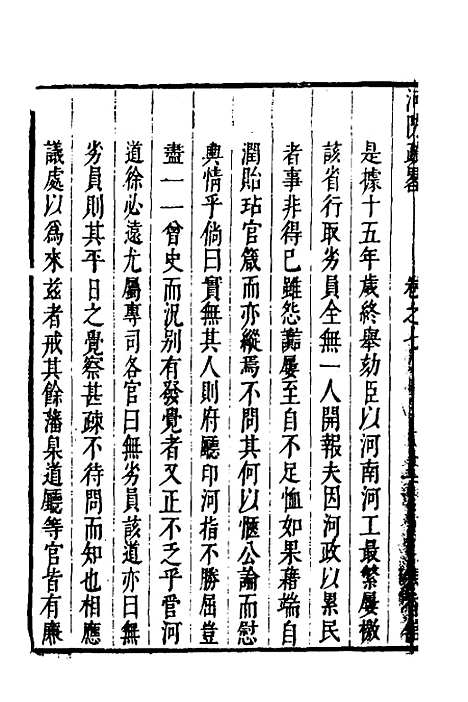 卷之七
是據十五年歲終舉劾臣以河南河工最繁屢檄
該省行取劣員全無一人開報夫因河政以累民
者事非得已雖怨讟屢至自不足恤如果藉端自
潤貽玷官箴而亦縱焉不問其何以愜公論而慰
輿情乎倘曰實無其人則府廳印河指不勝屈豈
盡一一曾史而況別有發覺者又正不乏乎管河
道徐必遠尤屬專司各官曰無劣員該道亦曰無
劣員則其平日之覺察甚疎不待問而知也相應
議處以為來茲者戒其餘藩臬道廳等官皆有廉